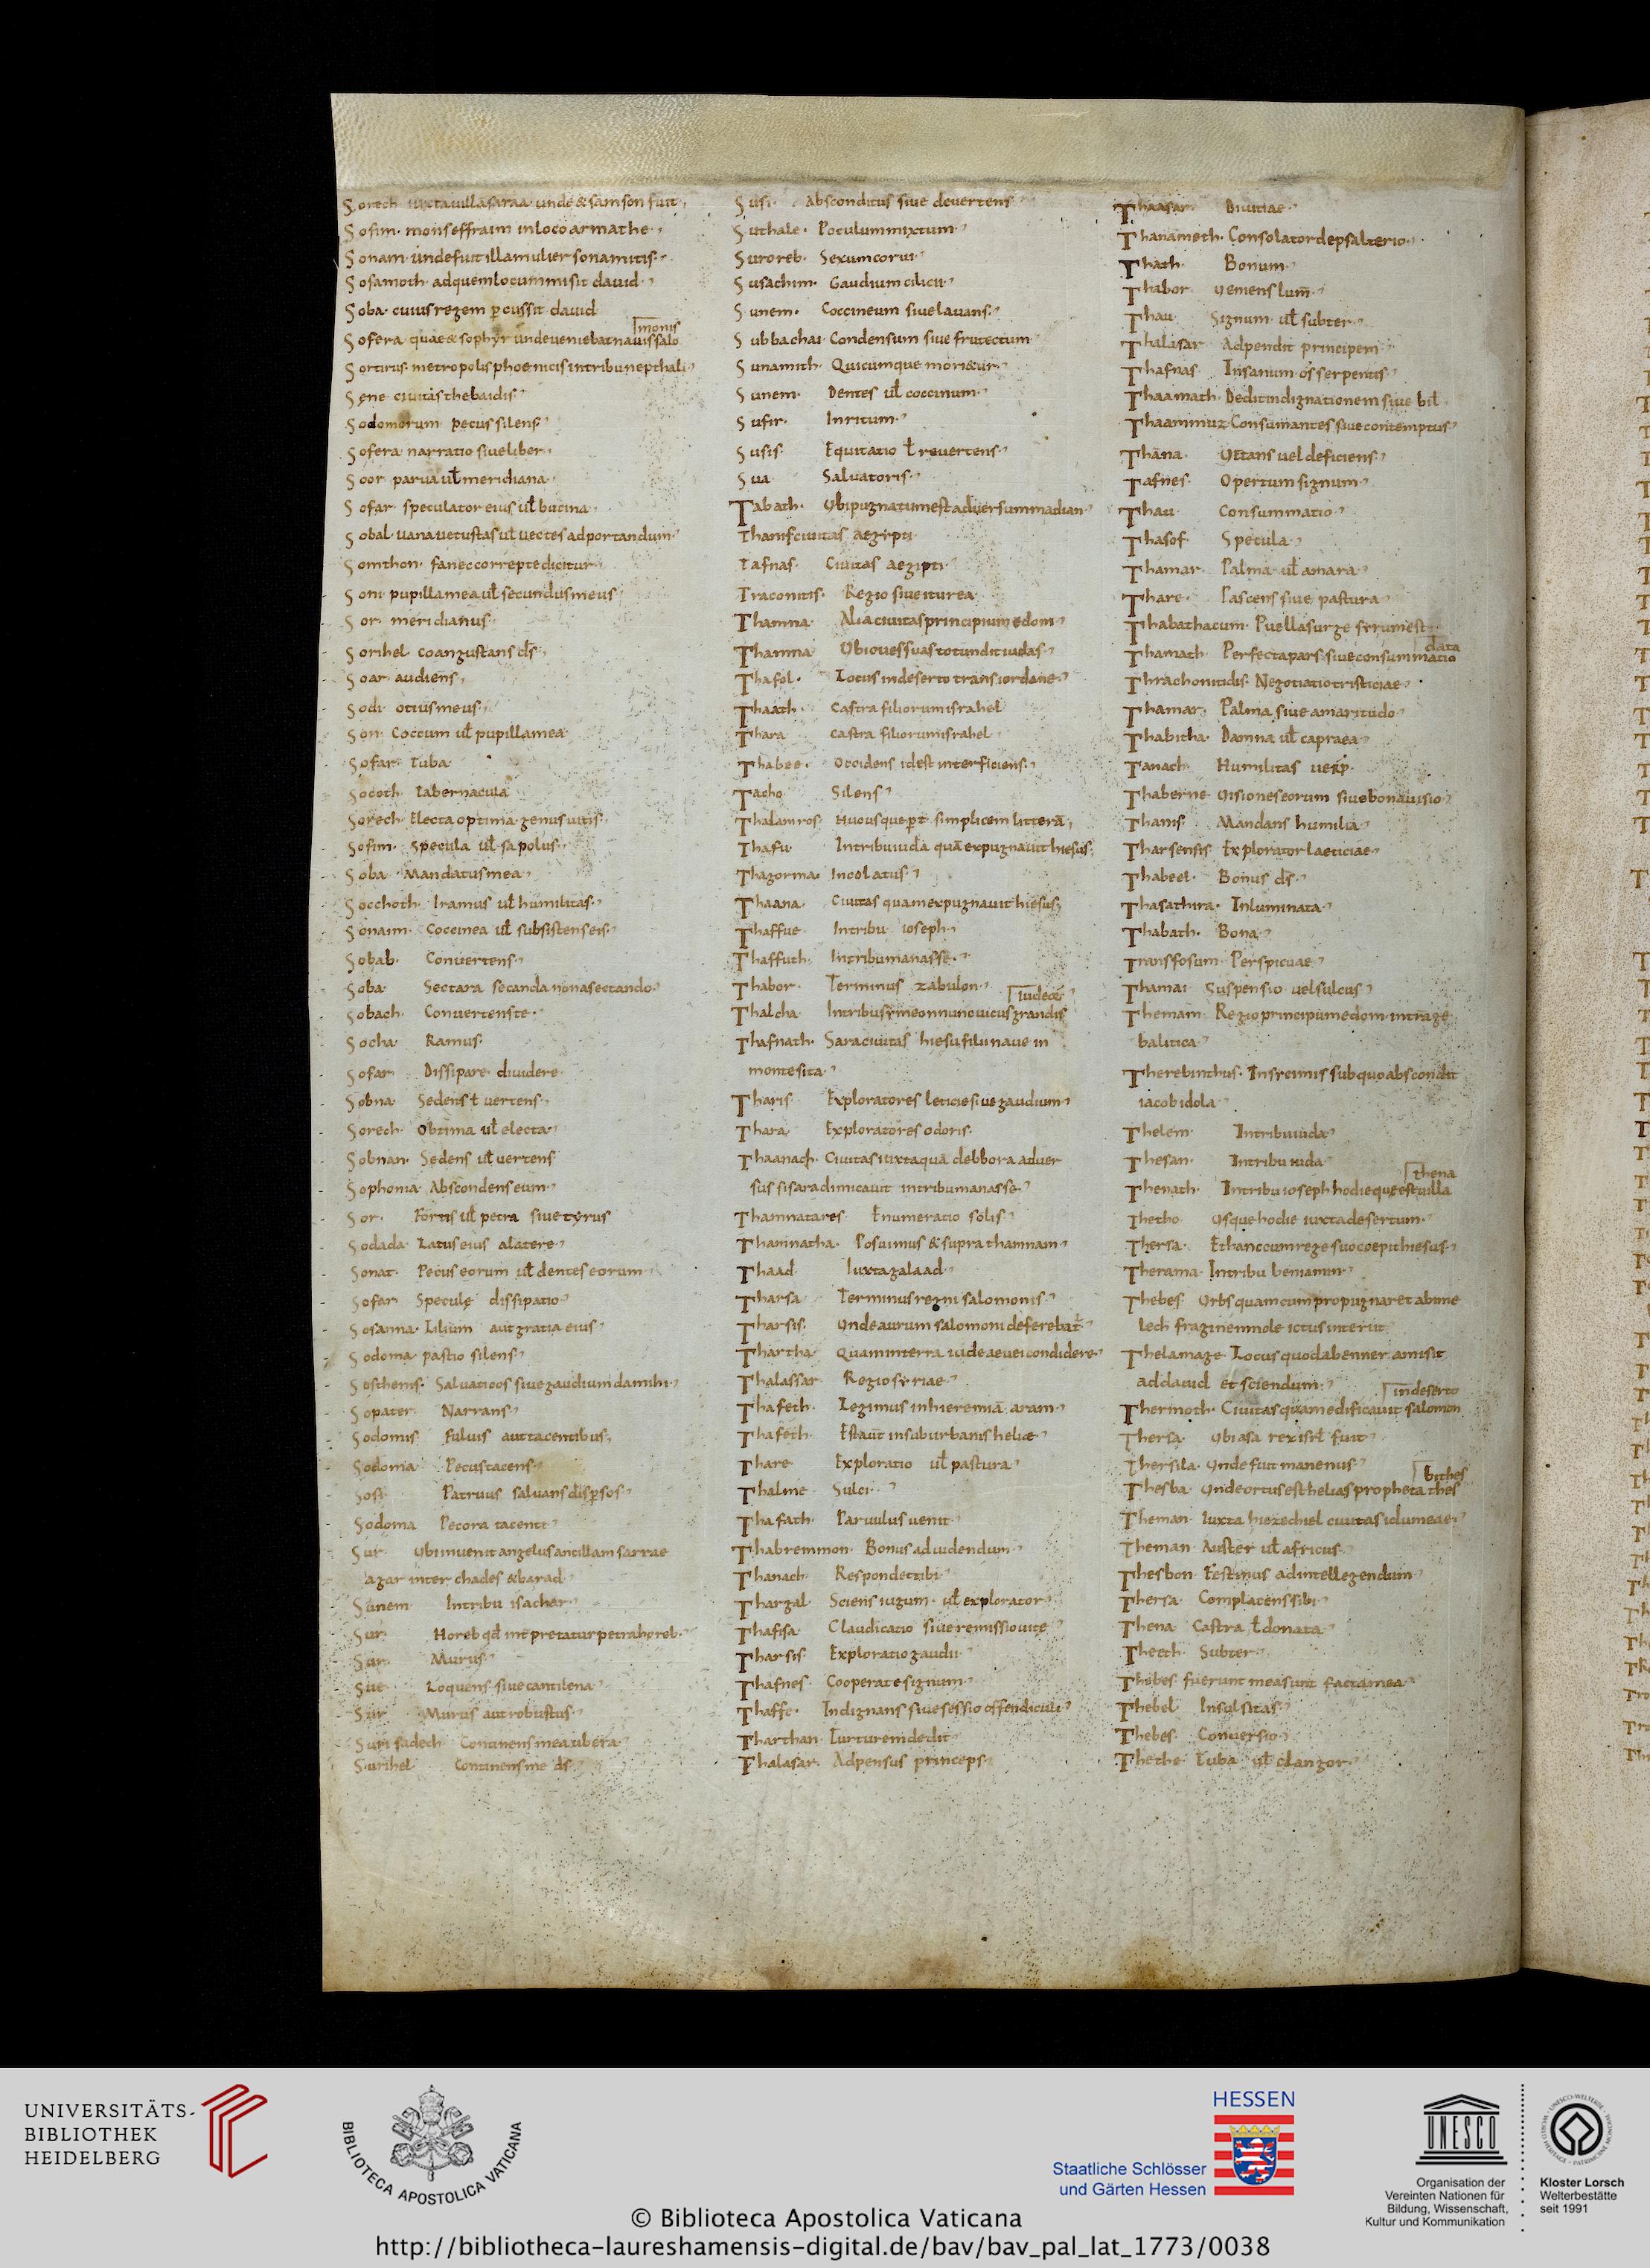 Sorech iuxta villa saraa unde & samson fuit
Sofim mons effraim in loco armathe
Sonam unde fuit illa mulier sonamitis
Sosamoth ad quem locum misit dauid
Soba cuius regem ꝑcussit dauid
monis
Sofera quae & sophyr unde veniebat nauis salo
Sortirus metropolis phoenicis in tribu nepthali
Sene ciuitas thebaidis
Sodomorum pecus silens
Sofera narratio siue liber
Soor parua uł meridiana
Sofar speculator eius uł bucina
Sobal uana uetustas uł uectes ad portandum
Somthon fanec correpte dicitur
Soni pupilla mea uł secundus meus
Sor meridianus
Sorihel coangustans ds̄
Soar audiens
Sodi otius meus
Son Coccum uł pupilla mea
Sofar Tuba
Socoth Tabernacula
Sorech Electa optima genus uitis
Sofim Specula uł sapolus
Soba Mandatus mea
Socchoth Iramus uł humilitas
Sonaim Coccinea uł subsistens eis
Sobab Conuertens
Soba Sectara secanda non a sectando
Sobach Conuertens te
Socha Ramus
Sofar Dissipare diuidere
Sobna Sedens ł uertens
Sorech Obtima uł electa
Sobnan Sedens uł uertens
Sophonia Abscondens eum
Sor Fortis uł petra siue tyrus
Sodada Latus eius a latere
Sonat Pecus eorum uł dentes eorum
Sofar Specule dissipatio
Sosanna Lilium aut gratia eius
Sodoma pastio silens
Sosthenis Saluatioos siue gaudium da mihi
Sopater Narrans
Sodomis Fuluis aut tacentibus
Sodoma Pecus tacens
Sosi Patruus saluans disꝑsos
Sodoma Pecora tacent
Sur Ubi inuenit angelus ancillam sarrae
agar inter chades & barad
Sunem In tribu isachar
Sur Horeb qd̄ int̄pretatur petra horeb
Sur Murus
Sue Loquens siue cantilena
Sur Murus aut robustus
Suri sadech Continens mea ubera
Surihel Continens me ds̄
Susi absconditus siue deuertens
Suthale Poculum mixtum
Suroreb Sexum corui
Susachim Gaudium cilicii
Sunem Coccineum siue lauans
Subbachai Condensum siue frutectum
Sunamith Quicumque mori&ur
Sunem Dentes uł coccinum
Sufir Inritum
Susis Equitatio ł reuertens
Sua Saluatoris
Tabath Ubi pugnatum est aduersum madian
Thanis ciuitas aegipti
Tafnas Ciuitas aegipti
Traconitis Regio siue iturea
Thamna Alia ciuitas principium edom
Thamna Ubi oues suas totundit iudas
Thafol Locus in deserto trans iordane
Thaath Castra filiorum israhel
Thara castra filiorum israhel
Thabee Occidens id est interficiens
Tacho Silens
Thalamros Huc usque ꝑt simplicem litterā
Thafu In tribu iuda quā expugnauit hiesus
Thagorma Incolatus
Thaana Ciuitas quam expugnauit hiesus
Thaffue In tribu ioseph
Thaffuth In tribu manasse
Thabor Terminus zabulon
iudeae
Thalcha In tribu symeon nunc uicus grandis
Thafnath Sara ciuitas hiesu filii naue in
monte sita
Tharis Exploratores leticie siue gaudium
Thara Exploratores odoris
Thaanach Ciuitas iuxta quā debbora aduer
sus sisara dimicauit in tribu manasse
Thamnatares Enumeratio solis
Thamnatha Posuimus & supra thamnam
Thaad Iuxta galaad
Tharsa Terminus regni salomonis
Tharsis Unde aurum salomoni deferebat̄
Thartha Quam in terra iudeae uei condidere
Thalassar Regio syriae
Thafeth Legimus in hieremiā aram
Thafeth Est aut̄ in suburbanis helie
Thare Exploratio uł pastura
Thalme Sulci
Thafath Paruulus uenit
Thabremmon Bonus ad uidendum
Thanach Respondet tibi
Thargal Sciens iugum uł explorator
Thafisa Claudicatio siue remissio uite
Tharsis Exploratio gaudii
Thafnes Cooperate signum
Thaffe Indignans siue sessio offendiculi
Tharthan Turturem dedit
Thalasar Adpensus princeps
Thaasar Diuitiae
Thanameth Consolator de psalterio
Thath Bonum
Thabor Uemens lum̄
Thau Signum uł subter
Thalasar Adpendit principem
Thafnas Insanum os serpentis
Thaamath Dedit indignationem siue bił
Thaammuz Consumantes siue contemptus
Thana Uetans uel deficiens
Tafnes Opertum signum
Thau Consummatio
Thasof Specula
Thamar Palma uł amara
Thare Pascens siue pastura
Thabathacum Puella surge syrum est
data
Thamath Perfecta pars siue consummatio
Thrachonitidis Negotiatio tristiciae
Thamar Palma siue amaritudo
Thabitha Damna uł capraea
Tanach Humilitas
Thaberne Uisiones eorum siue bona uisio
Thanis Mandans humilia
Tharsensis Explorator laeticiae
Thabeel Bonus ds̄
Thasathira Inluminata
Thabath Bona
Transfosum Perspicuae
Thamai Suspensio uel sulcus
Themam Regio principum edom in trage
balitica
Therebinthus In sycimis sub quo abscondit
iacob idola
Thelem In tribu iuda
Thesan In tribu iuda
thena
Thenath In tribu ioseph hodieque est uilla
Thetho Usque hodie iuxta desertum
Thersa Et hanc cum rege suo coepit hiesus
Therama In tribu beniamin
Thebes Urbs quam cum propugnaret abime
lech fragine mole ictus interiit
Thelamage Locus quod abenner amisit
ad dauid et sciendum
in deserto
Thermoth Ciuitas quam edificauit salomon
Thersa Ubi asa rex isrł fuit
Thersila Unde fuit manenus
bithes
Thesba Unde ortus est helias propheta thes
Theman Iuxta hiezechiel ciuitas idumeae
Theman Auster uł africus
Thesbon Festinus ad intellegendum
Thersa Complacens sibi
Thena Castra ł donata
Theeth Subter
Thobes fuerunt mea sunt facta mea
Thebel Insulsitas
Thebes Conuersio
Thethe Tuba uł clangor
UNIVERSITÄTS-
BIBLIOTHEK
HEIDELBERG
BIBLIOTECA APOSTOLICA VATICANA
HESSEN
Staatliche Schlösser
und Gärten Hessen
UNESCO
Organisation der
Vereinten Nationen für
Bildung, Wissenschaft,
Kultur und Kommunikation
Kloster Lorsch
Welterbestätte
seit 1991
© Biblioteca Apostolica Vaticana
http://bibliotheca-laureshamensis-digital.de/bav/bav_pal_lat_1773/0038